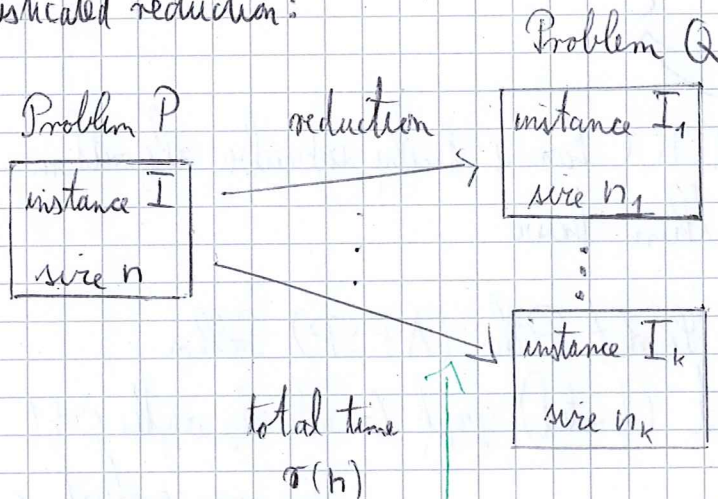 reduction:
Problem Q
Problem P
reduction
instance I
size n
instance I₁
size n₁
⋮
⋮
instance Iₖ
size nₖ
total time
r(n)